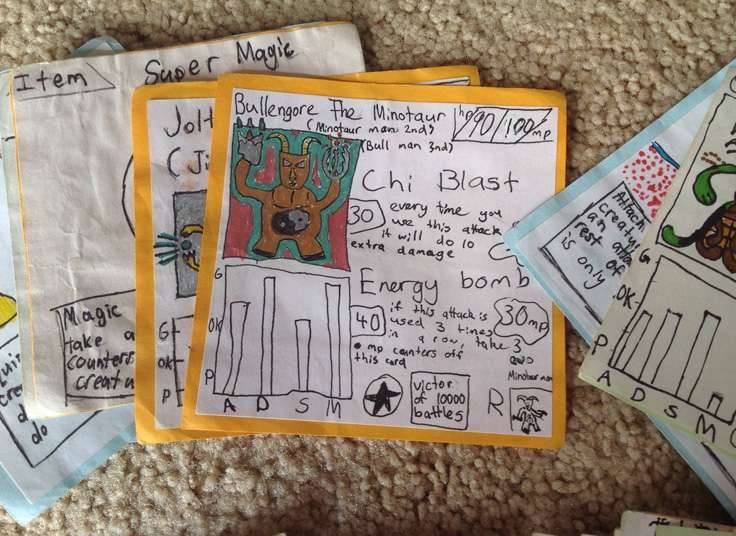 Item
Super Magic
Magic
take a
counters
creatu
Jolt
(Ji
G
OK
P
Bullengore The Minotaur
(Minotaur man 2nd)
(Bull man 3nd)
hp 90/100 mp
Chi Blast
30
every time you
use this attack
it will do 10
extra damage
Energy bomb
40
if this attack is
used 3 times
in a row, take 3
mp counters off
this card
30mp
G
OK
P
A D S M
victor
of 10000
battles
R
Minotaur man
Attach
creatu
an atta
rest of
is only
G
OK
P
A D S M
cre
d
do